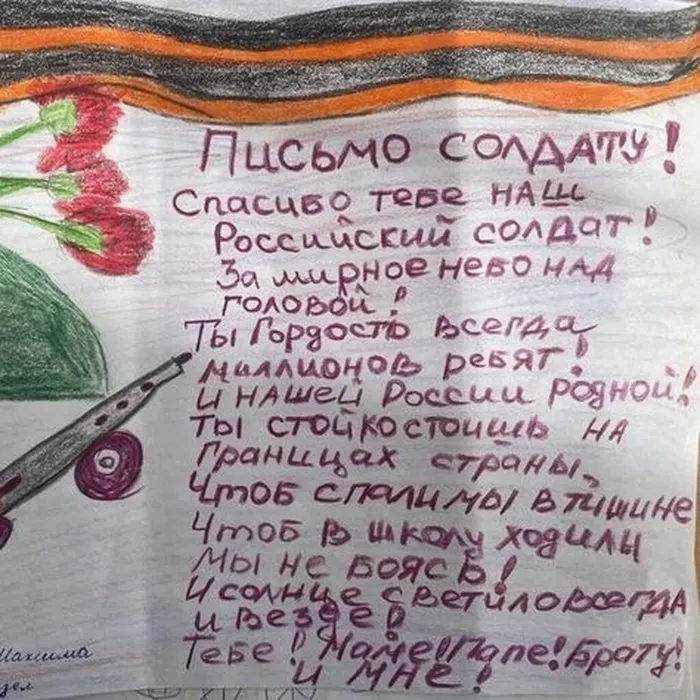 Письмо солдату!
Спасибо тебе наш
Российский солдат!
За мирное небо над
головой!
Ты Гордость всегда
миллионов ребят!
И нашей России родной!
Ты стойко стоишь на
Границах страны,
Чтоб спали мы в тишине
Чтоб в школу ходили
мы не боясь!
И солнце светило всегда
и везде!
Тебе! Маме! Папе! Брату!
И мне!
Максима